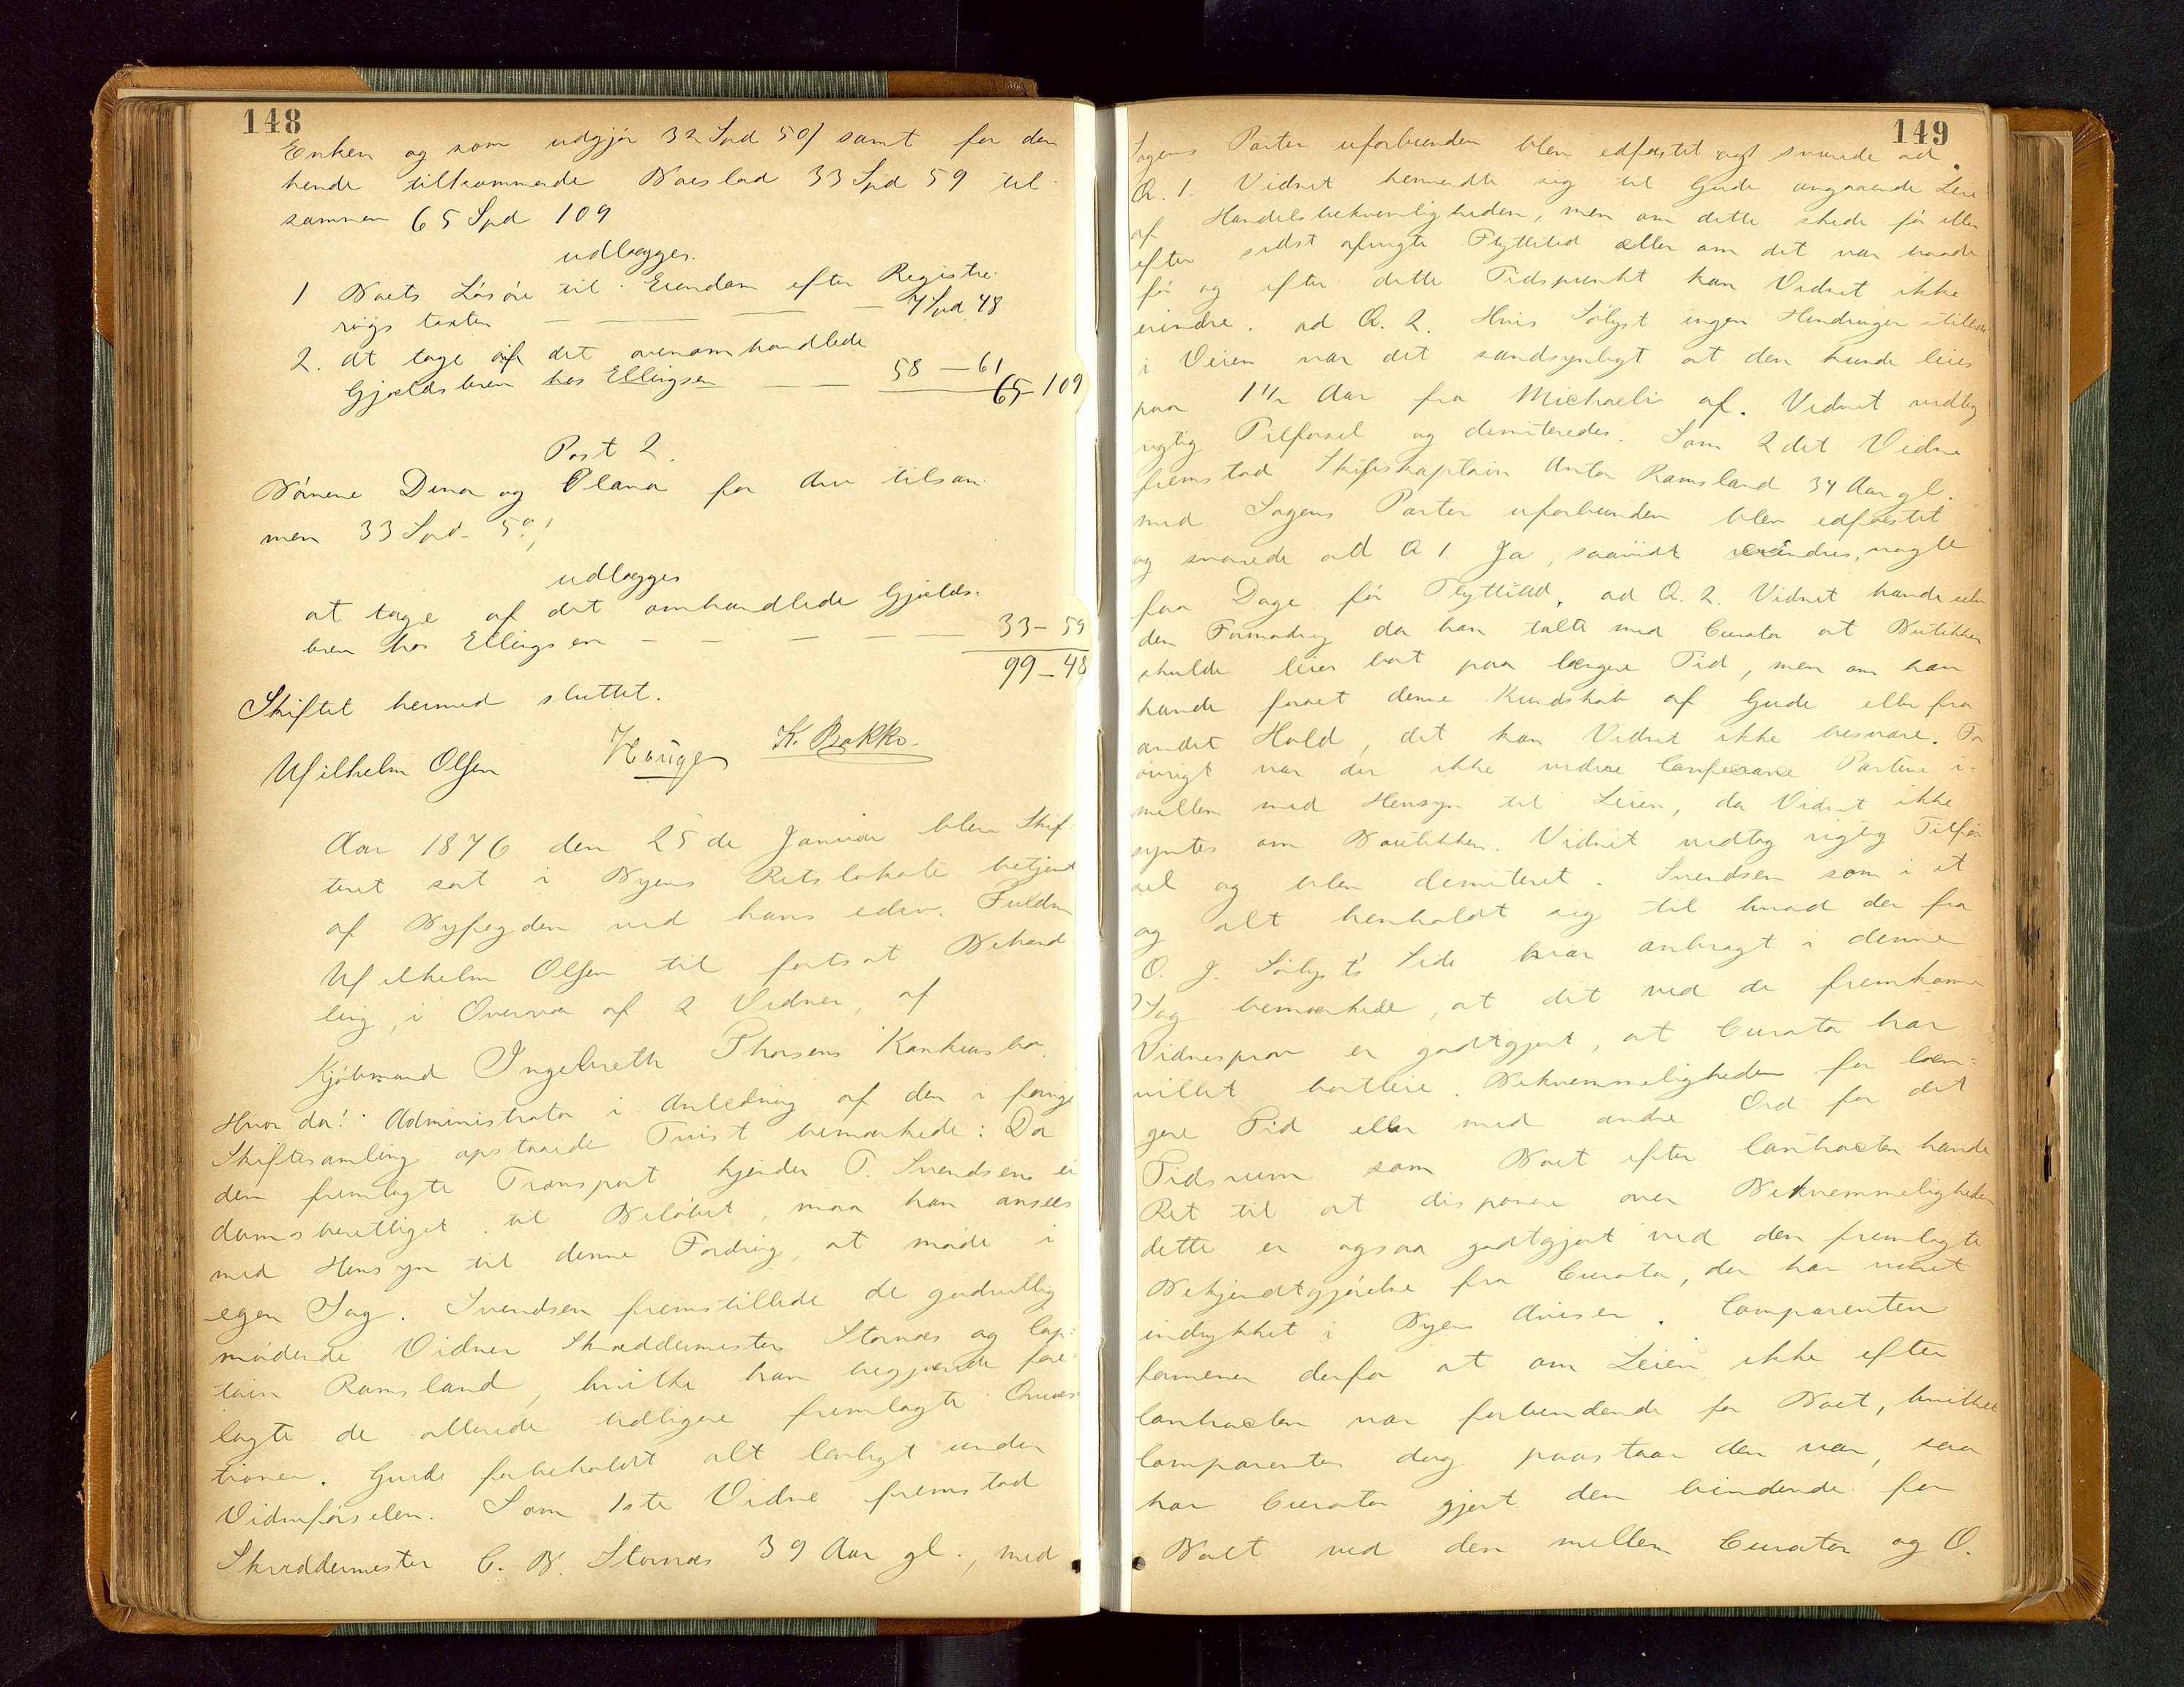 148
Enken og som udgjør 32 Spd 50/ samt for den
hende tilkommende Boeslod 33 Spd 59 til
sammen 65 Spd 109
udlægges.
1 Boets Løsøre til Eiendom efter Registre-
rings taxten — — — 7 Spd 48
2. at tage af det ovenomhandlede
Gjældsbrev hos Ellingsen — — 58 — 61
65-109
Post 2.
Børnene Dina og Olava for Arv tilsam-
men 33 Spd. 59/
udlægges
at tage af det omhandlede Gjælds-
brev hos Ellingsen — — — — 33 - 59
99 - 48
Skiftet hermed sluttet.
Wilhelm Olsen Hauge K. Bakke
Aar 1876 den 25de Januar blev Skif-
teret sat i Byens Retslokale betjent
af Byfogden ved hans edsv. Fuldm
Wilhelm Olsen til fortsat Behand-
ling, i Overvær af 2 Vidner, af
Kjøbmand Ingebreth Thorsens Konkursbo.
Hvor da! Administrator i Anledning af den i forrige
Skiftesamling opstaaede Tvist bemærkede: Da
den fremlagte Transport kjender T. Svendsen ei
domsberettiget til Beløbet, maa han ansees
med Hensyn til denne Fordring, at møde i
egen Sag. Svendsen fremstillede de godvillig
mødende Vidner Skræddermester Stornæs og Cap-
tain Ramsland, hvilke han begjærede fore-
lagte de allerede tidligere fremlagte Qvæs-
tioner. Gude forbeholdt alt lovligt under
Vidneførselen. Som 1ste Vidne fremstod
Skræddermester C. B. Stornæs 39 Aar gl., med
149
Sagens Parter uforbunden blev edfæstet og svarede ad
Q. 1. Vidnet henvendte sig til Gude angaaende Leie
af Handelsbekvemligheden, men om dette skede før eller
efter sidst afvigte Flyttetid eller om det var baade
før og efter dette Tidspunkt kan Vidnet ikke
erindre. ad Q. 2. Hvis Sølyst ingen Hindringer stillede
i Veien var det sandsynligt at den kunde leies
paa 1 1/2 Aar fra Michaeli af. Vidnet vedtog
rigtig Tilførsel og demiteredes. Som 2det Vidne
fremstod Skibskaptain Anton Ramsland 34 Aar gl.
med Sagens Parter uforbunden blev edfæstet
og svarede ad Q 1. Ja, saavidt erindres, nogle
faa Dage før Flyttetid, ad Q. 2. Vidnet havde
den Formodning da han talte med Curator at Butikken
skulde leies bort paa længere Tid, men om han
havde faaet denne Kundskab af Gude eller fra
andet Hold, det kan Vidnet ikke besvare. For
øvrigt var der ikke videre Conferance Partene i-
mellem med Hensyn til Leien, da Vidnet ikke
syntes om Boutikken. Vidnet vedtog rigtig Tilfør
sel og blev demiteret. Svendsen som i et
og alt henholdt sig til hvad der fra
O. J. Sølyst's Side var anbragt i denne
Sag bemærkede, at det ved de fremkomne
Vidnesprov er godtgjort, at Curator har
villet bortleie Bekvemmeligheden for læn=
gere Tid eller med andre Ord for det
Tidsrum som Boet efter Contracten havde
Ret til at disponere over Bekvemmeligheden
dette er ogsaa godtgjort ved den fremlagte
Bekjendtgjørelse fra Curator, der har været
indrykket i Byens Aviser. Comparenten
formener derfor at om Leien ikke efter
Contracten var forbindende for Boet, hvilket
Comparenten dog paastaar den var, saa
har Curator gjort den bindende for
Boet ved den mellem Curator og O.